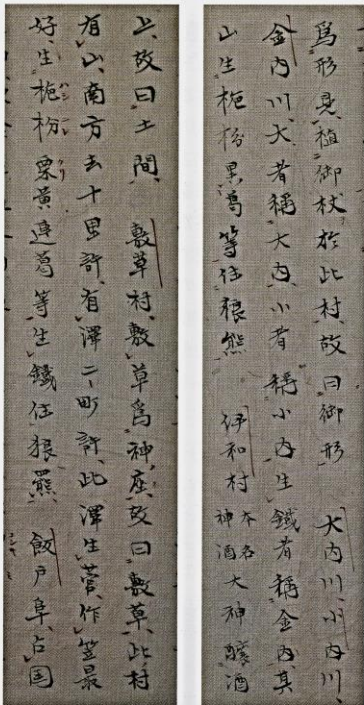 爲形見植御杖於此村故曰御形 大内川小内川
金内川大者稱大内小者稱小内生鐵者稱金内其
山生枙枌黒葛等住狼熊 伊和村 本名神酒 大神釀酒
上故曰土間 敷草村敷草爲神座故曰敷草此村
有山南方去十里許有澤二町許此澤生菅作笠最
好生枙枌栗黄連葛等生鐵住狼羆 飯戸阜占国